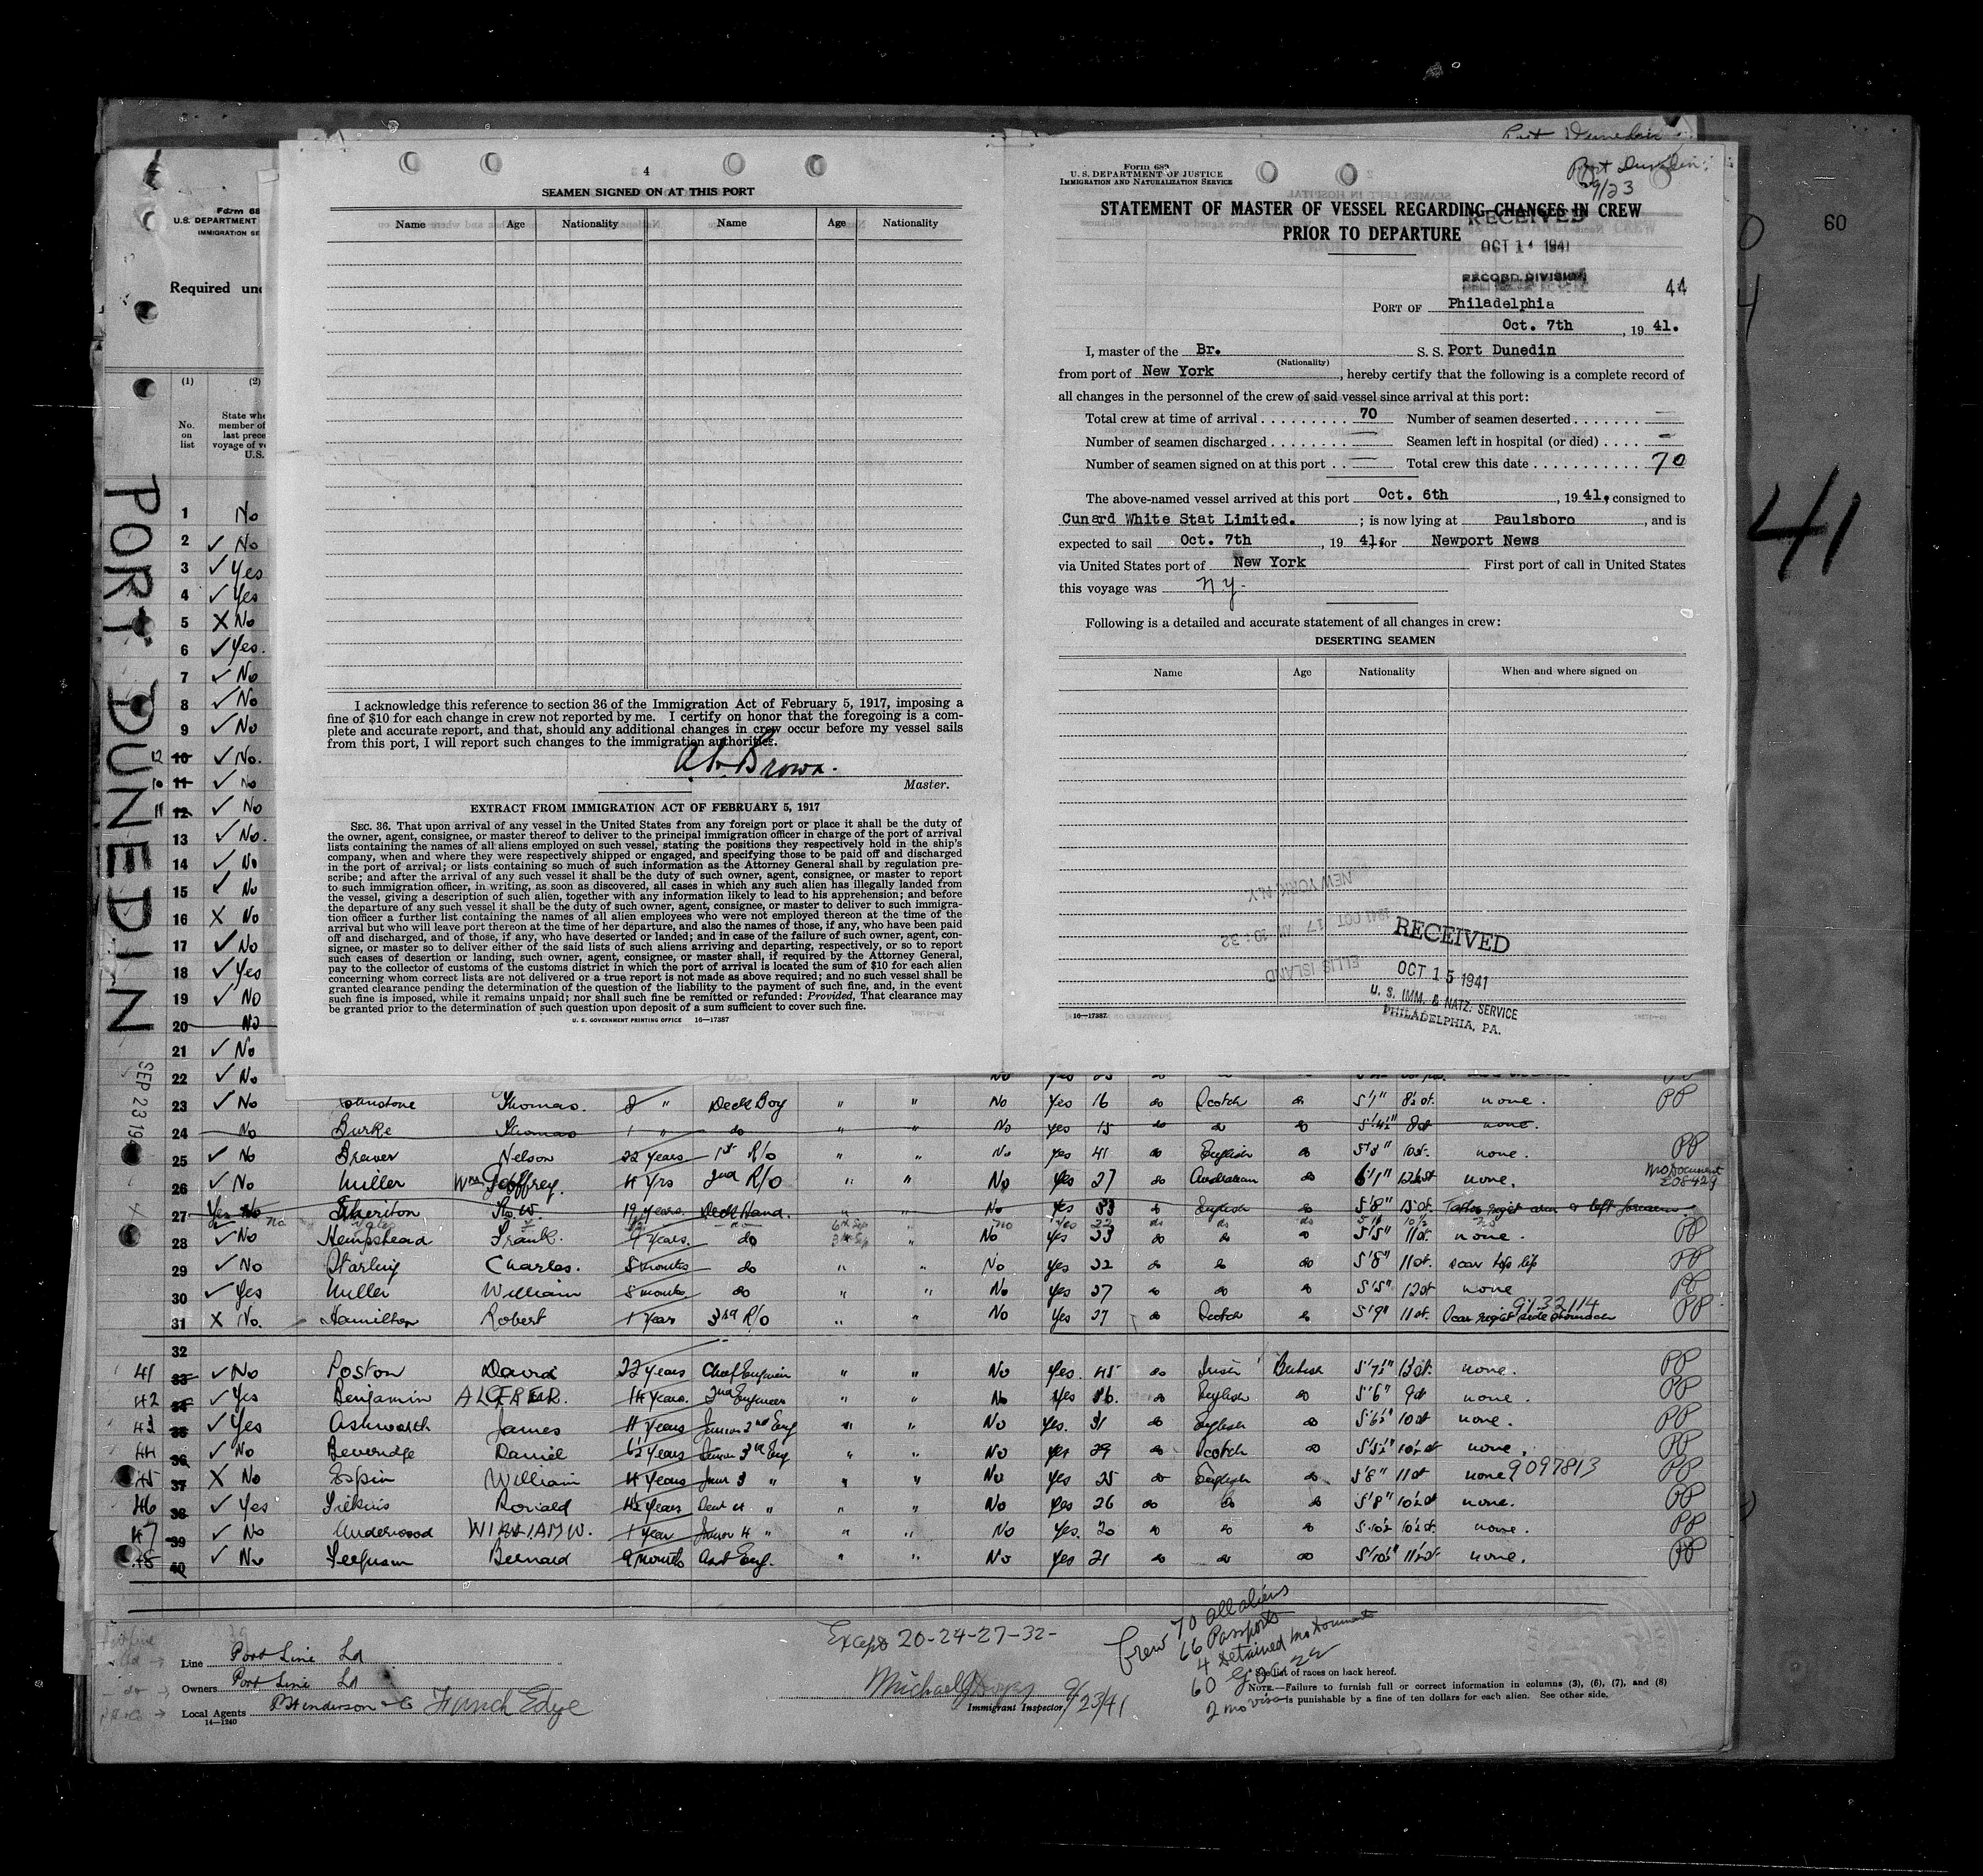 Port Dunedin
60
41
PORT DUNEDIN
SEP 23 19
Form 68
U.S. DEPARTMENT
IMMIGRATION SE
Required und
(1) (2)
No. on list
State whe
member of
last prece
voyage of ve
U.S.
1 No
2 ✓ No
3 ✓ Yes
4 ✓ Yes
5 X No
6 ✓ Yes.
7 ✓ No
8 ✓ No
9 ✓ No
12 10 ✓ No.
10 11 ✓ No
11 12 ✓ No
13 ✓ No.
14 ✓ No
15 ✓ No
16 X No
17 ✓ No
18 ✓ Yes
19 ✓ No
20 No
21 ✓ No
22 ✓ No
4
SEAMEN SIGNED ON AT THIS PORT
Name Age Nationality Name Age Nationality
I acknowledge this reference to section 36 of the Immigration Act of February 5, 1917, imposing a
fine of $10 for each change in crew not reported by me. I certify on honor that the foregoing is a com-
plete and accurate report, and that, should any additional changes in crew occur before my vessel sails
from this port, I will report such changes to the immigration authorities.
Brown.
Master.
EXTRACT FROM IMMIGRATION ACT OF FEBRUARY 5, 1917
SEC. 36. That upon arrival of any vessel in the United States from any foreign port or place it shall be the duty of
the owner, agent, consignee, or master thereof to deliver to the principal immigration officer in charge of the port of arrival
lists containing the names of all aliens employed on such vessel, stating the positions they respectively hold in the ship's
company, when and where they were respectively shipped or engaged, and specifying those to be paid off and discharged
in the port of arrival; or lists containing so much of such information as the Attorney General shall by regulation pre-
scribe; and after the arrival of any such vessel it shall be the duty of such owner, agent, consignee, or master to report
to such immigration officer, in writing, as soon as discovered, all cases in which any such alien has illegally landed from
the vessel, giving a description of such alien, together with any information likely to lead to his apprehension; and before
the departure of any such vessel it shall be the duty of such owner, agent, consignee, or master to deliver to such immigra-
tion officer a further list containing the names of all alien employees who were not employed thereon at the time of the
arrival but who will leave port thereon at the time of her departure, and also the names of those, if any, who have been paid
off and discharged, and of those, if any, who have deserted or landed; and in case of the failure of such owner, agent, con-
signee, or master so to deliver either of the said lists of such aliens arriving and departing, respectively, or so to report
such cases of desertion or landing, such owner, agent, consignee, or master shall, if required by the Attorney General,
pay to the collector of customs of the customs district in which the port of arrival is located the sum of $10 for each alien
concerning whom correct lists are not delivered or a true report is not made as above required; and no such vessel shall be
granted clearance pending the determination of the question of the liability to the payment of such fine, and, in the event
such fine is imposed, while it remains unpaid; nor shall such fine be remitted or refunded: Provided, That clearance may
be granted prior to the determination of such question upon deposit of a sum sufficient to cover such fine.
U. S. GOVERNMENT PRINTING OFFICE 16—17387
Form 689
U. S. DEPARTMENT OF JUSTICE
IMMIGRATION AND NATURALIZATION SERVICE
Port Dunedin
9/23
STATEMENT OF MASTER OF VESSEL REGARDING CHANGES IN CREW
PRIOR TO DEPARTURE
RECEIVED
OCT 14 1941
RECORD DIVISION
44
PORT OF Philadelphia
Oct. 7th, 1941.
I, master of the Br. S. S. Port Dunedin
(Nationality)
from port of New York, hereby certify that the following is a complete record of
all changes in the personnel of the crew of said vessel since arrival at this port:
Total crew at time of arrival 70 Number of seamen deserted —
Number of seamen discharged — Seamen left in hospital (or died) —
Number of seamen signed on at this port — Total crew this date 70
The above-named vessel arrived at this port Oct. 6th, 1941, consigned to
Cunard White Stat Limited. ; is now lying at Paulsboro, and is
expected to sail Oct. 7th, 1941, for Newport News
via United States port of New York First port of call in United States
this voyage was N.Y.
Following is a detailed and accurate statement of all changes in crew:
DESERTING SEAMEN
Name Age Nationality When and where signed on
NEW YORK N.Y
1941 OCT 17 AM 10:32
ELLIS ISLAND
RECEIVED
OCT 15 1941
U. S. IMM. & NATZ. SERVICE
PHILADELPHIA, PA.
16—17387
23 ✓ No Johnstone Thomas. 8 " Deck Boy " " No Yes 16 do Scotch do 5'7" 8½ st. none. PP
24 No Burke Thomas 1 " do " " No yes 15 do do do 5'4½" 8st none.
25 ✓ No Brewer Nelson 22 years 1st R/o " " No Yes 41 do English do 10st. none. PP
26 ✓ No Miller Wm Geoffrey. 4 yrs 2nd R/O " " No Yes 27 do Australian do 6'1" 12½st none. No Document E08429
27 Yes No 19 years Deck Hand. " " No Yes 33 do English do 5'8" Tattoo right arm & left forearm
28 ✓ No Hempshead Frank. 9 years. do " No yes 33 do do do 5'5" 11st. none. PP
29 ✓ No Starling Charles. 8 months do " " No yes 32 do do do 5'8" 11st. scar top lip PP
30 ✓ Yes Miller William 8 months do " " No yes 37 do do do 5'5" 12st none PP
31 X No. Hamilton Robert 1 Year 3rd R/o No Yes 27 do Scotch do 5'9" 11st. Scar right side stomach 9132114 PP
32
41 33 ✓ No Poston David 22 years Chief Engineer " " No Yes. 45 do Irish British 5'7½" 13st. none. PP
42 34 ✓ Yes Benjamin ALFRED R. 14 years. 2nd Engineer " " No Yes 36. do English do 5'6" 9st none. PP
43 35 ✓ Yes Ashworth James 4 years Junior 2nd Eng " " No yes. 31 do English do 5'6½" 10st none. PP
44 36 ✓ No Beveridge Daniel 6½ years Senior 3rd Eng " " No yes 29 do Scotch do 5'5½" 10½st none. PP
45 37 X No Espin William 4 years Junr 3 " " " No yes 25 do English do 5'8" 11st none 9097813 PP
46 38 ✓ Yes Ronald 4½ years Senr 4 " " " No yes 26 do do do 5'8" 10½st none. PP
47 39 ✓ No Underwood WILLIAM W. 1 year Junior 4 " " " No Yes. 20 do do do 5'10½ 10½st. none. PP
48 40 ✓ No Ferguson Bernard 9 months Asst Eng. " " No Yes 21 do do do 5'10½" 11½st none. PP
Except 20-24-27-32-
Crew 70 all aliens
66 Passports
4 detained no documents
2 no visa
Line Port Line Ld
Owners Port Line Ld
Local Agents
14—1240
Michael
9/23/41
Immigrant Inspector
* See list of races on back hereof.
NOTE.—Failure to furnish full or correct information in columns (3), (6), (7), and (8)
is punishable by a fine of ten dollars for each alien. See other side.